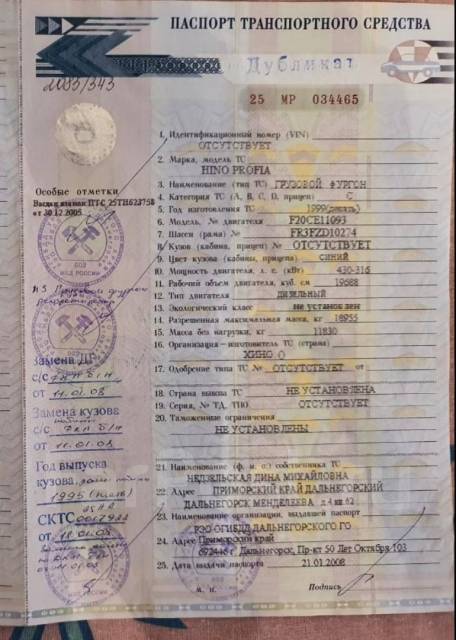 ПАСПОРТ ТРАНСПОРТНОГО СРЕДСТВА
Дубликат
25 МР 034465
1. Идентификационный номер (VIN)
ОТСУТСТВУЕТ
2. Марка, модель ТС
HINO PROFIA
3. Наименование (тип ТС) ГРУЗОВОЙ ФУРГОН
4. Категория ТС (А, В, С, D, прицеп) С
5. Год изготовления ТС 1999
6. Модель, № двигателя F20CE11093
7. Шасси (рама) № FR3FZD10274
8. Кузов (кабина, прицеп) № ОТСУТСТВУЕТ
9. Цвет кузова (кабины, прицепа) СИНИЙ
10. Мощность двигателя, л. с. (кВт) 430-316
11. Рабочий объем двигателя, куб. см 19688
12. Тип двигателя ДИЗЕЛЬНЫЙ
13. Экологический класс не установлен
14. Разрешенная максимальная масса, кг 18955
15. Масса без нагрузки, кг 11830
16. Организация-изготовитель ТС (страна)
ХИНО
17. Одобрение типа ТС № ОТСУТСТВУЕТ от
18. Страна вывоза ТС НЕ УСТАНОВЛЕНА
19. Серия, № ТД, ТПО ОТСУТСТВУЕТ
20. Таможенные ограничения
НЕ УСТАНОВЛЕНЫ
21. Наименование (ф. и. о.) собственника ТС
НЕДЗЕЛЬСКАЯ ДИНА МИХАЙЛОВНА
22. Адрес ПРИМОРСКИЙ КРАЙ ДАЛЬНЕГОРСКИЙ
ДАЛЬНЕГОРСК МЕНДЕЛЕЕВА д 4 кв 62
23. Наименование организации, выдавшей паспорт
РЭО ОГИБДД ДАЛЬНЕГОРСКОГО ГО
24. Адрес Приморский край
692446 г Дальнегорск, Пр-кт 50 Лет Октября 103
25. Дата выдачи паспорта 21.01.2008
М. П.
Подпись
Особые отметки
Выдан взамен ПТС 25ТН623758
от 30.12.2005
МВД РОССИИ
Замена ДВ
с/с
от 11.01.08
Замена кузова
с/с б/н
от 11.01.08
Год выпуска
кузова,
1995
СКТС
от 11.01.08